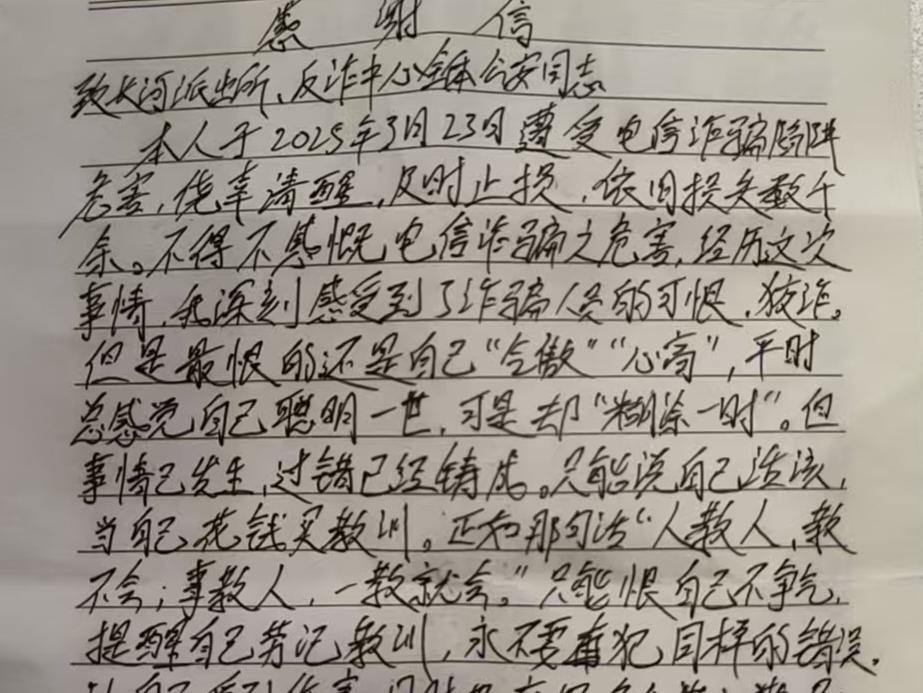 感谢信
致长河派出所、反诈中心全体公安同志
本人于2025年3月23日遭受电信诈骗陷阱
危害,侥幸清醒,及时止损,依旧损失数千
余。不得不感慨电信诈骗之危害,经历这次
事情,我深刻感受到了诈骗人员的可恨,狡诈。
但是最恨的还是自己“气傲”“心高”,平时
总感觉自己聪明一世,可是却“糊涂一时”。但
事情已发生,过错已经铸成。只能说自己活该,
当自己花钱买教训。正如那句话“人教人,教
不会;事教人,一教就会。”只能恨自己不争气,
提醒自己劳记教训,永不要再犯同样的错误。